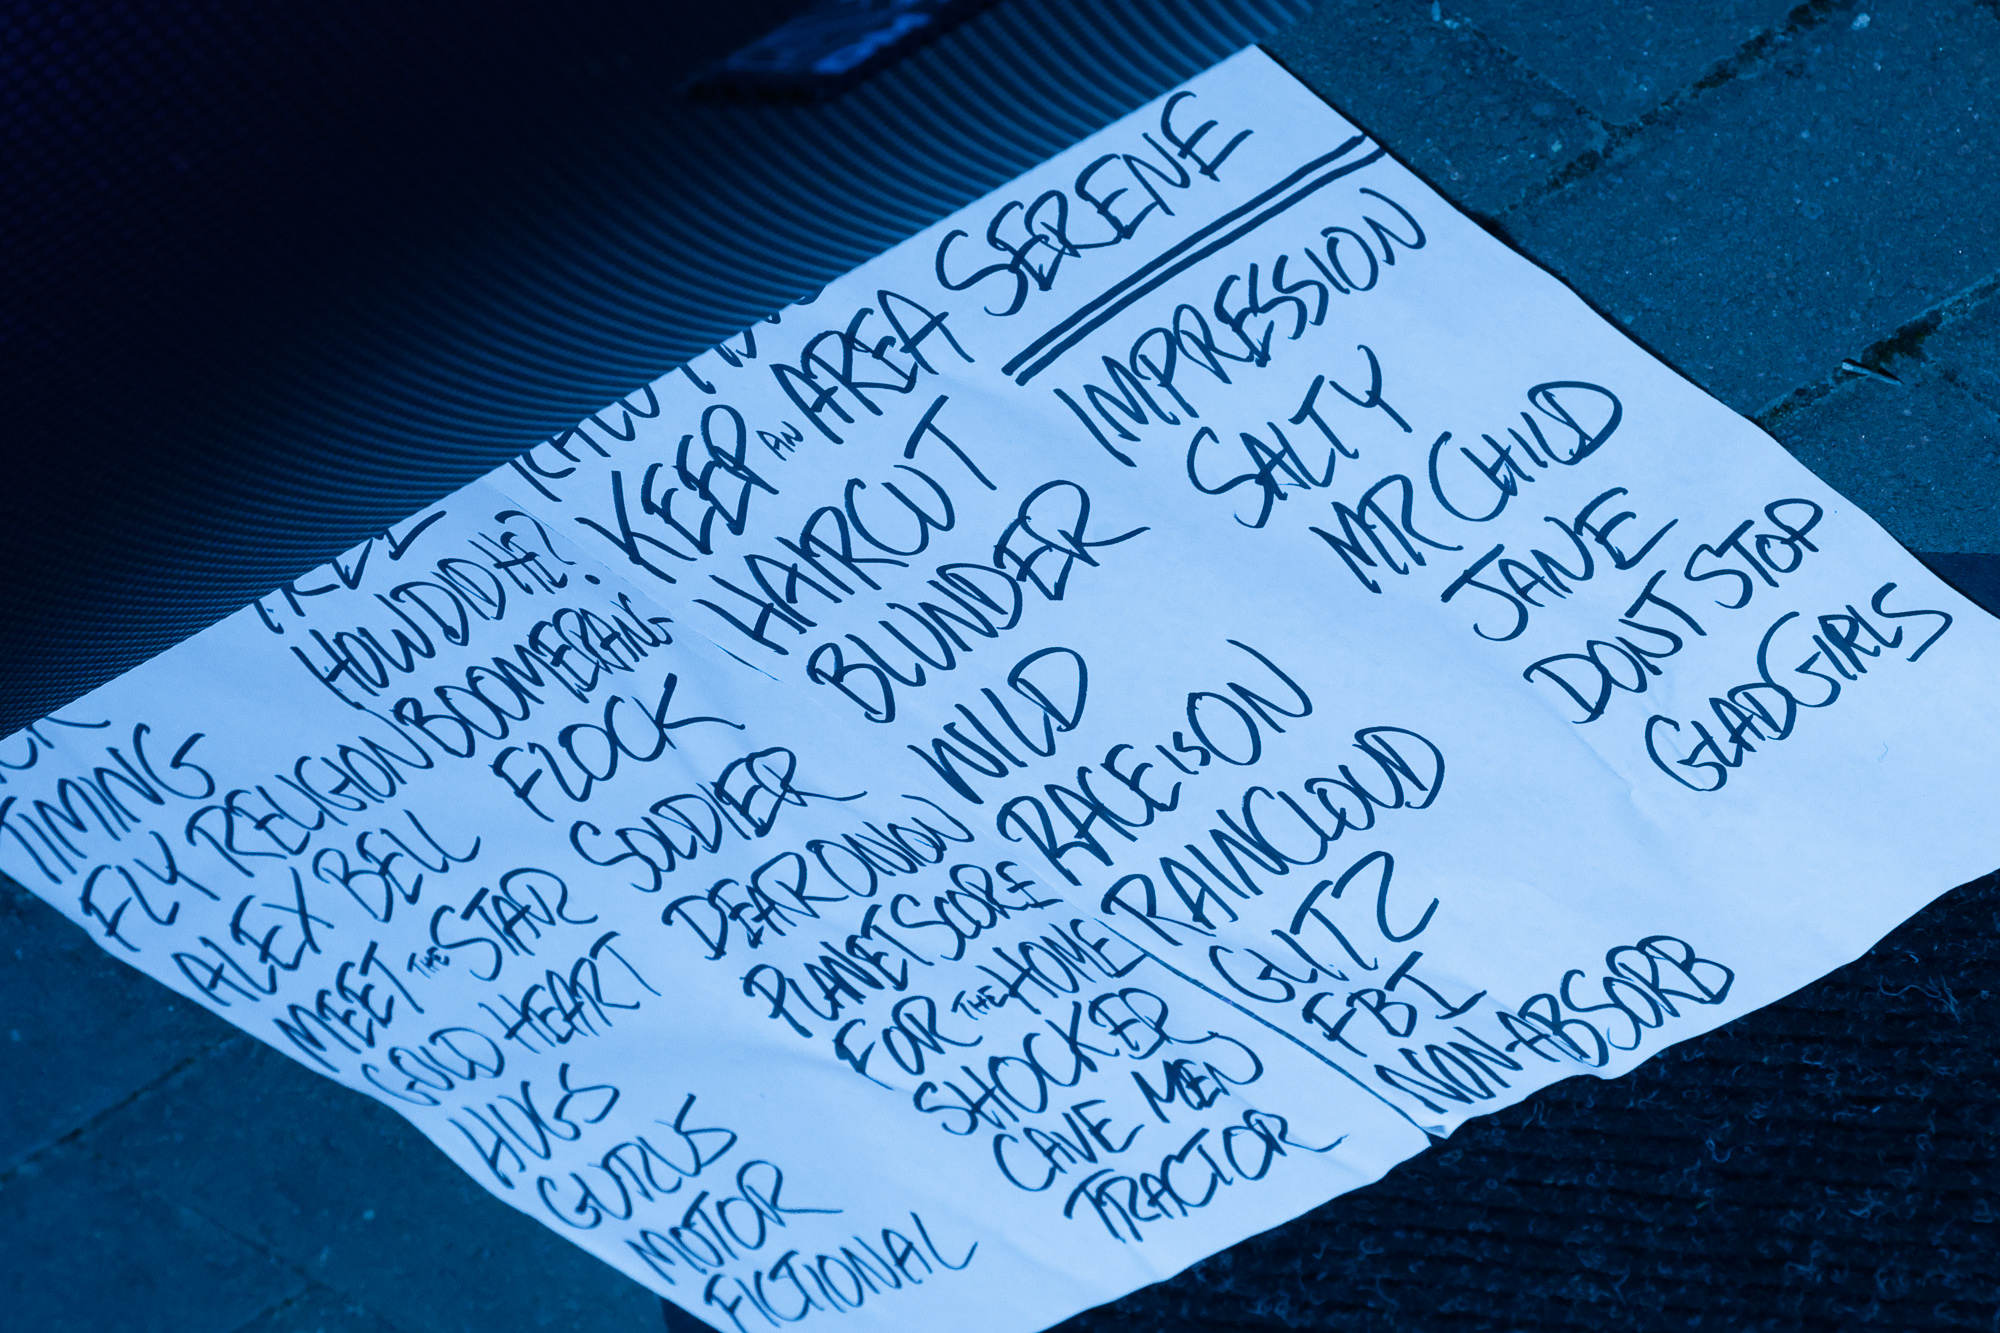 TIMING
FLY RELIGION
ALEX BELL
MEET THE STAR
GOLD HEART
HUGS
GURUS
MOTOR
FICTIONAL
HOW DID HE?
BOOMERANG
FLOCK
SOLDIER
DEAR ONION
PLANET SCORE
FOR THE HOME
SHOCKER
CAVE MEN
TRACTOR
KEEP AN AREA
HAIRCUT
BLUNDER
WILD
RACE IS ON
RAINCLOUD
GLITZ
FBI
NON-ABSORB
SERENE
IMPRESSION
SALTY
MR CHILD
JANE
DONT STOP
GLAD GIRLS